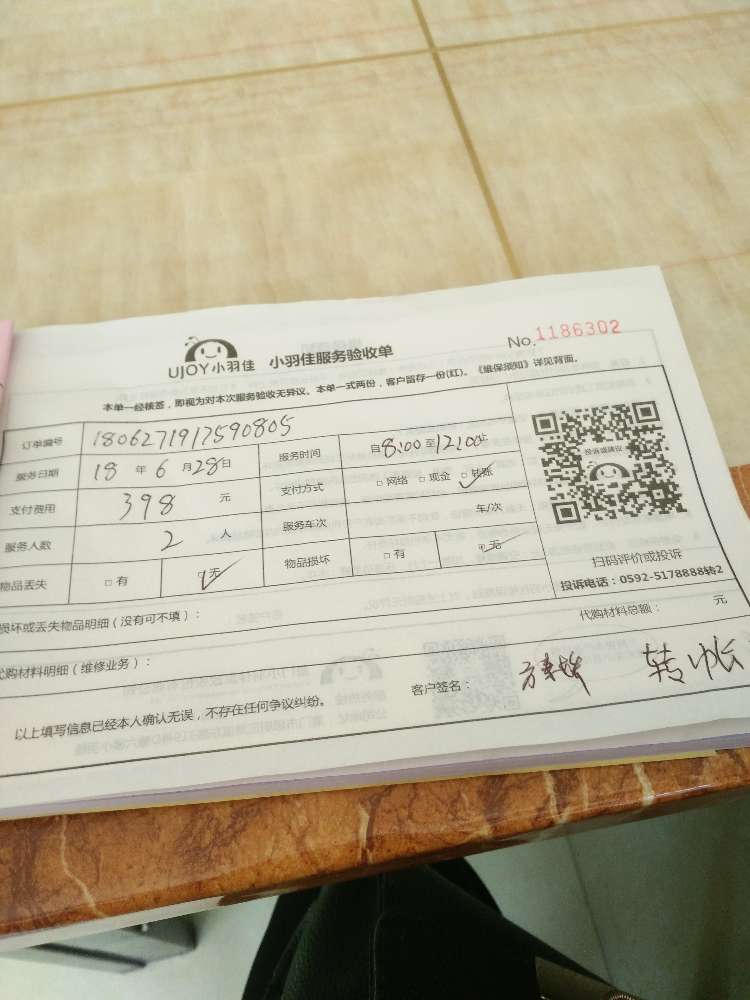 UJOY小羽佳 小羽佳服务验收单 No.1186302
本单一经核签，即视为对本次服务验收无异议。本单一式两份，客户留存一份(红)。《维保须知》详见背面。
订单编号 180627191759０805 服务时间 自8:00至12:00止
服务日期 18年6月28日 支付方式 □网络 □现金 □转账
支付费用 398 元 服务车次 车/次
服务人数 2 人 物品损坏 □有 □无
物品丢失 □有 □无
投诉或建议
扫码评价或投诉
投诉电话：0592-5178888转2
损坏或丢失物品明细（没有可不填）：
代购材料明细（维修业务）： 代购材料总额： 元
以上填写信息已经本人确认无误，不存在任何争议纠纷。 客户签名： 转帐